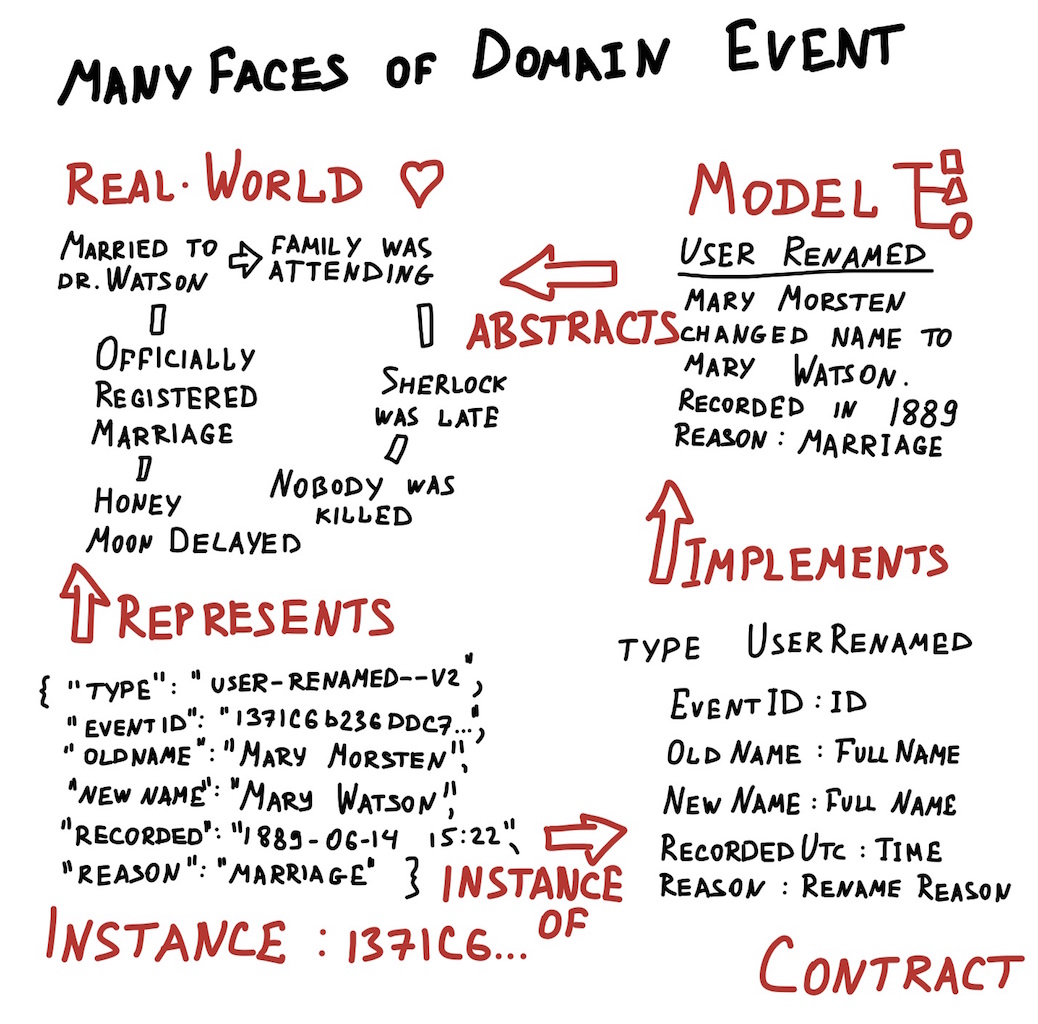 MANY FACES OF DOMAIN EVENT
REAL·WORLD
MARRIED TO
DR. WATSON
FAMILY WAS
ATTENDING
OFFICIALLY
REGISTERED
MARRIAGE
HONEY
MOON DELAYED
SHERLOCK
WAS LATE
NOBODY WAS
KILLED
ABSTRACTS
MODEL
USER RENAMED
MARY MORSTEN
CHANGED NAME TO
MARY WATSON.
RECORDED IN 1889
REASON: MARRIAGE
IMPLEMENTS
REPRESENTS
{ "TYPE": "USER-RENAMED--V2",
"EVENTID": "1371C6b236DDC7...",
"OLDNAME": "MARY MORSTEN",
"NEW NAME": "MARY WATSON",
"RECORDED": "1889-06-14 15:22",
"REASON": "MARRIAGE" }
INSTANCE
OF
INSTANCE: 1371C6...
TYPE USERRENAMED
EVENTID: ID
OLD NAME: FULL NAME
NEW NAME: FULL NAME
RECORDED UTC: TIME
REASON: RENAME REASON
CONTRACT